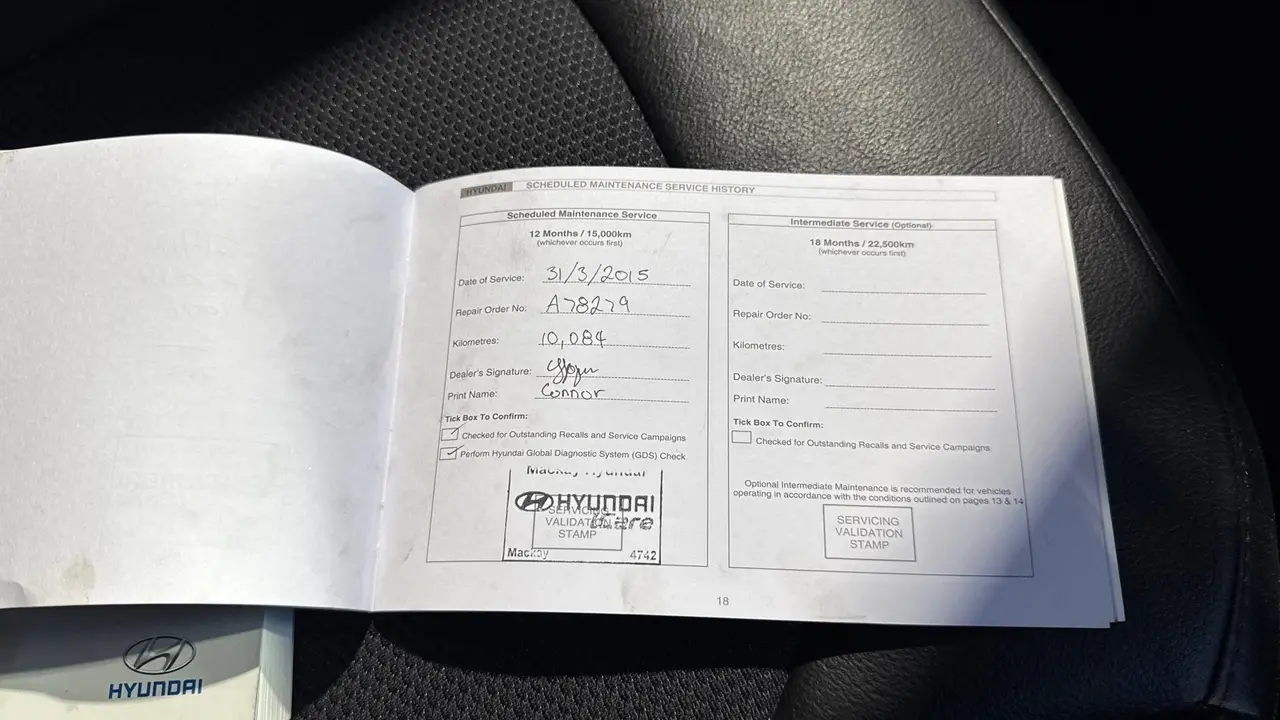 HYUNDAI SCHEDULED MAINTENANCE SERVICE HISTORY
Scheduled Maintenance Service
12 Months / 15,000km
(whichever occurs first)
Date of Service: 31/3/2015
Repair Order No: A78279
Kilometres: 10,084
Dealer's Signature:
Print Name: Connor
Tick Box To Confirm:
Checked for Outstanding Recalls and Service Campaigns
Perform Hyundai Global Diagnostic System (GDS) Check
Mackay Hyundai
HYUNDAI
SERVICING
VALIDATION
STAMP
Mackay 4742
Intermediate Service (Optional)
18 Months / 22,500km
(whichever occurs first)
Date of Service:
Repair Order No:
Kilometres:
Dealer's Signature:
Print Name:
Tick Box To Confirm:
Checked for Outstanding Recalls and Service Campaigns
Optional Intermediate Maintenance is recommended for vehicles
operating in accordance with the conditions outlined on pages 13 & 14
SERVICING
VALIDATION
STAMP
18
HYUNDAI